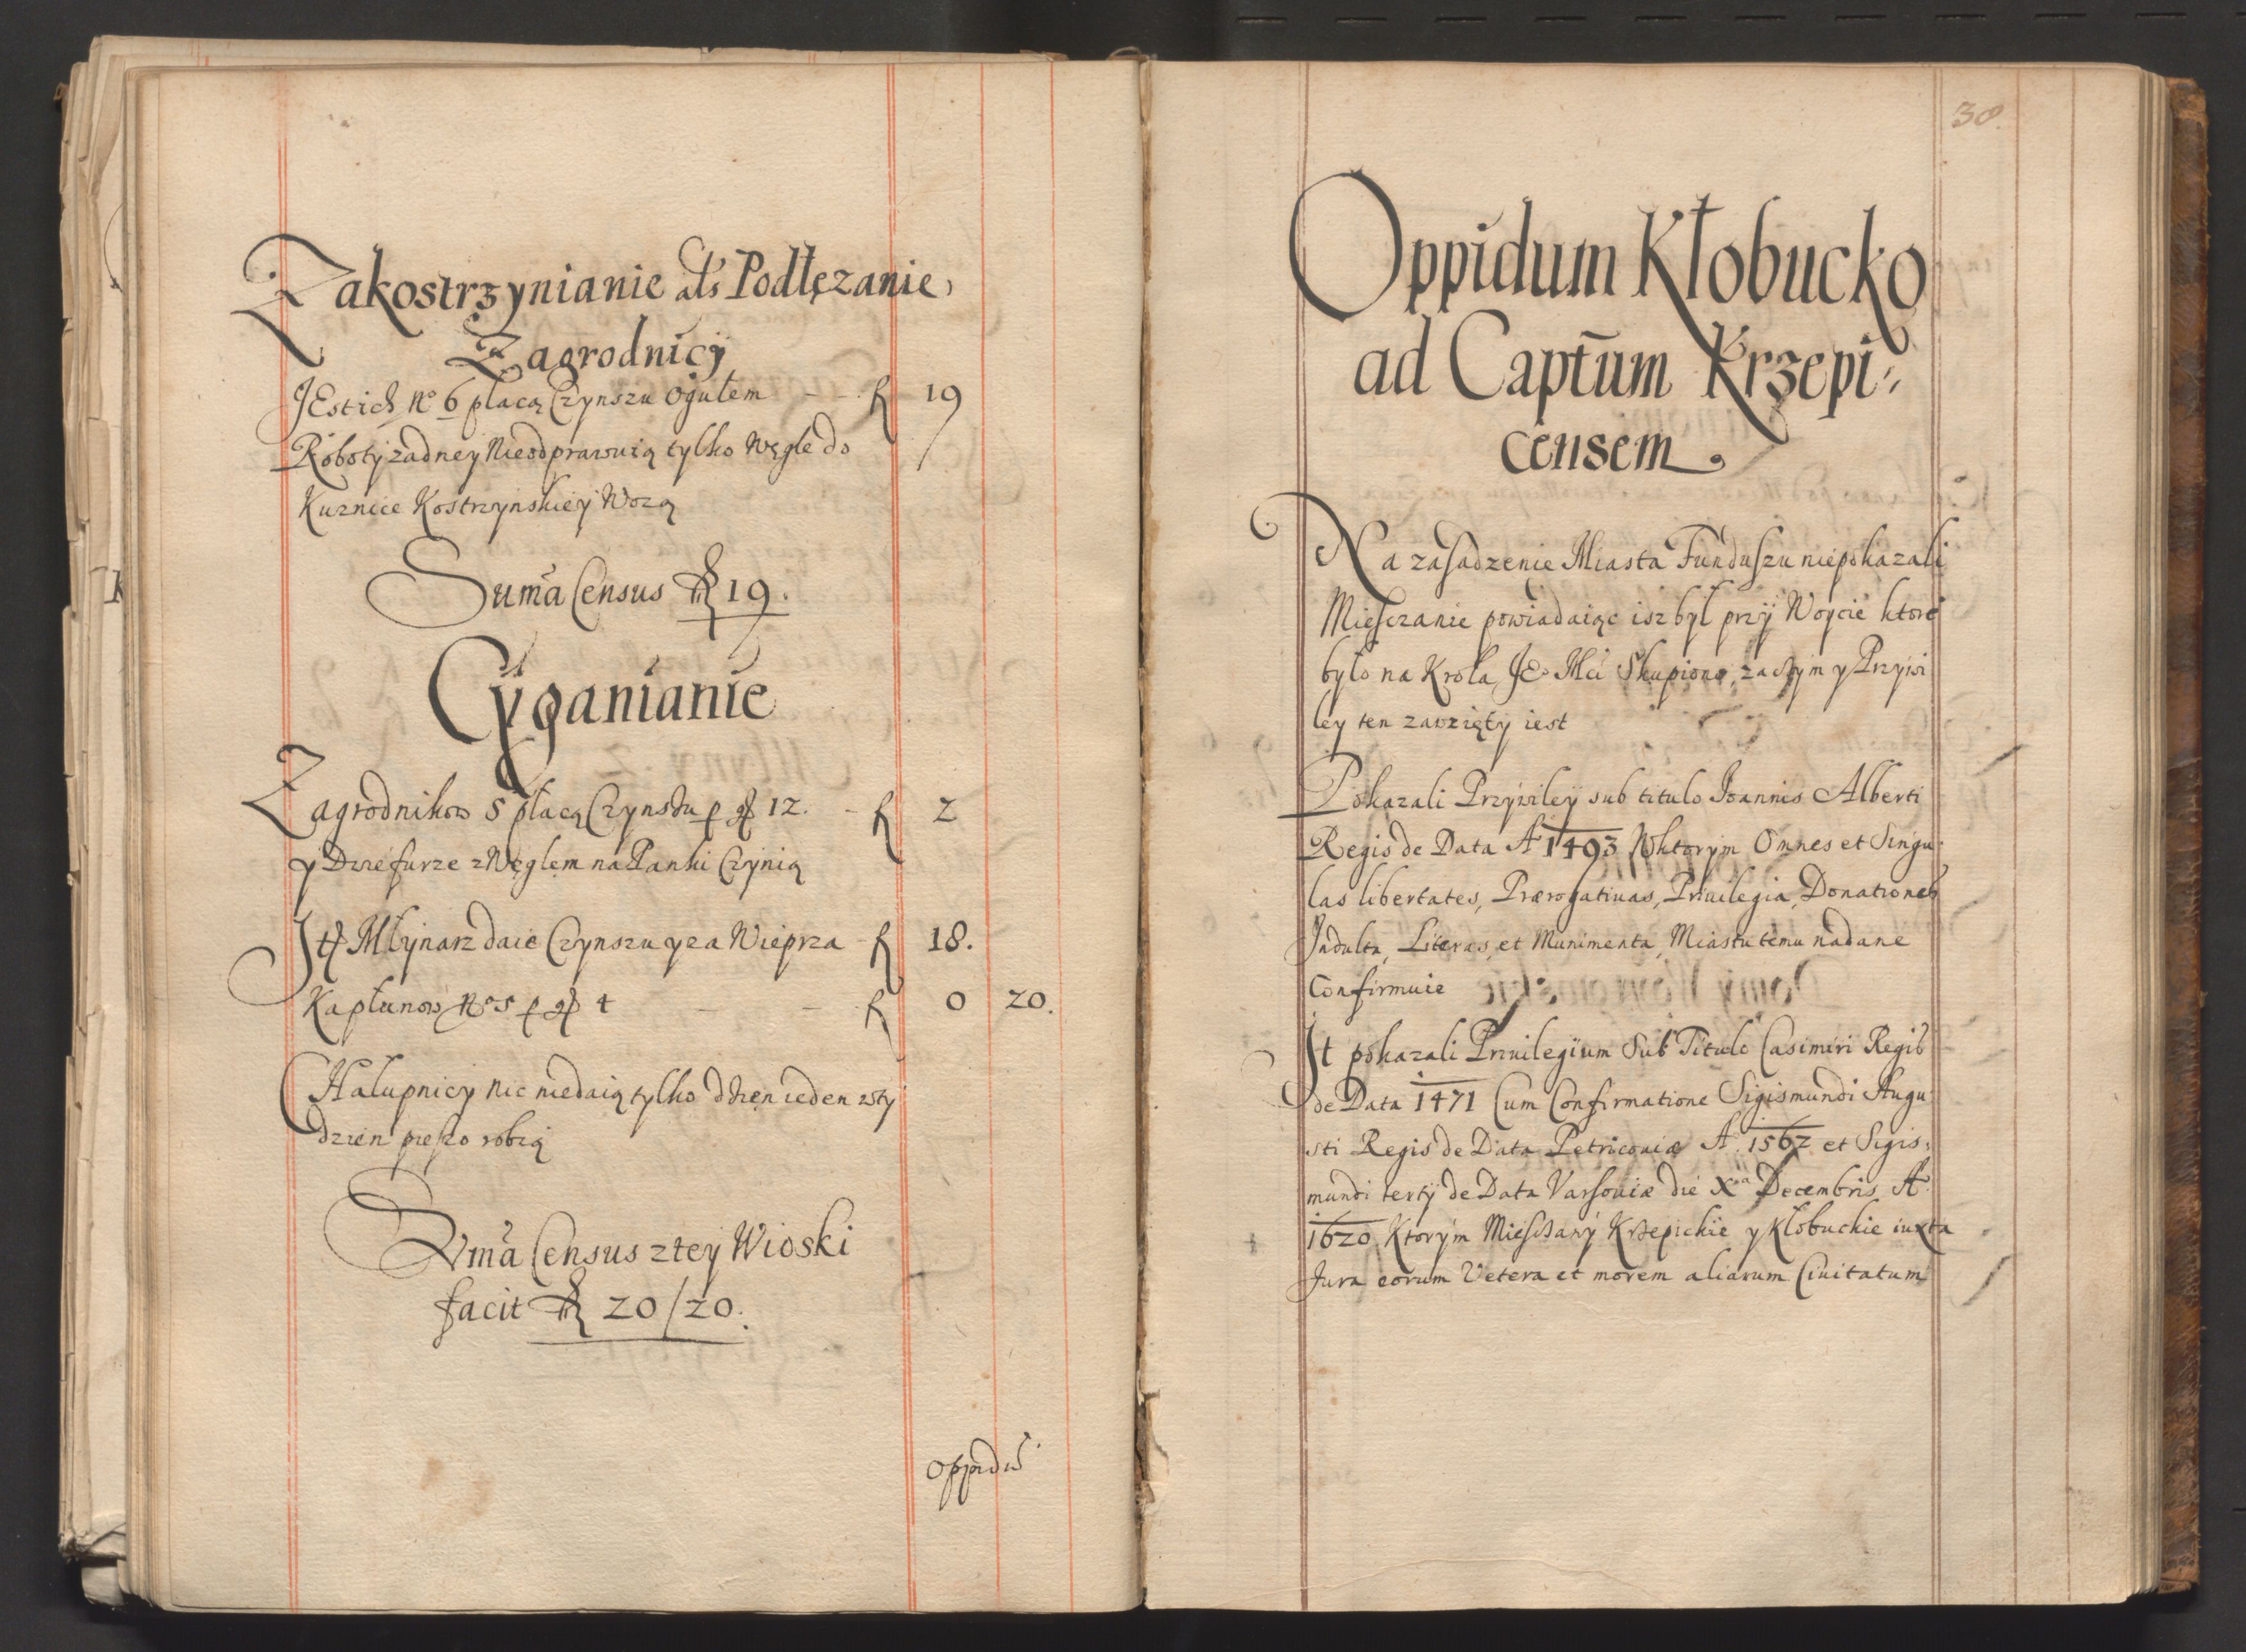 Zakostrzynianie als Podłęzanie,
Zagrodnicÿ
JEstich No 6 płacą Czynszu ogułem f 19
Robotÿ zadneÿ Nieodprawuią tylko Węgle do
Kuznice Kostrzynskieÿ Wozą
Suma Census f 19.
Cÿganianie
Zagrodnikow 5 płacą Czynszu p gr 12. f 2
ÿ Dwiefurze zWęglem na Panki Czÿnią
It Młÿnarz daie Czynszu y za Wieprza f 18.
Kapłunow No 5 p gr 4 f 0 20.
CHałupnicÿ nic niedaią tylko dzien ieden wtÿ
dzien pieszo robią
Suma Census zteÿ Wioski
facit f 20/20.
Oppidu
30.
Oppidum Kłobucko
ad Captum Krzepi
censem
Na zasadzenie Miasta Funduszu niepokazali
Miesczanie powiadaiąc isz był przÿ Woycie ktore
było na Krola JE Mci Skupione, zaczym y Przÿwi
ley ten zawzięty iest
Pokazali Przÿwileÿ sub titulo Joannis Alberti
Regis de Data A 1493 Wktorÿm Omnes et Singu
las libertates, Prærogatiuas, Priuilegia, Donationes
Indulta, Literas, et Munimenta, Miastu temu nadane
Confirmuie
It pokazali Priuilegium Sub Titulo Casimiri Regis
de Data 1471 Cum Confirmatione Sigismundi Augu
sti Regis de Data Petricouiæ A. 1562 et Sigis
mundi tertÿ de Data Varsouiæ die Xa Decembris A.
1620 Ktorÿm Mieszczanÿ Krzepickie y Kłobuckie iuxta
Jura eorum Vetera et morem aliarum Ciuitatum